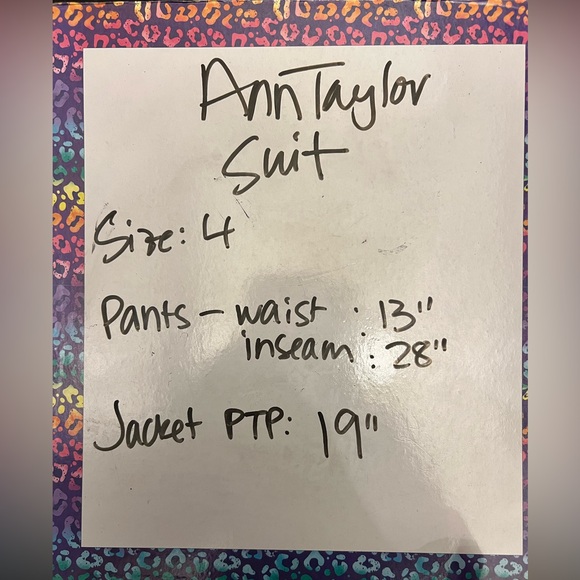 AnnTaylor
Suit
Size: 4
Pants - waist : 13"
inseam : 28"
Jacket PTP: 19"